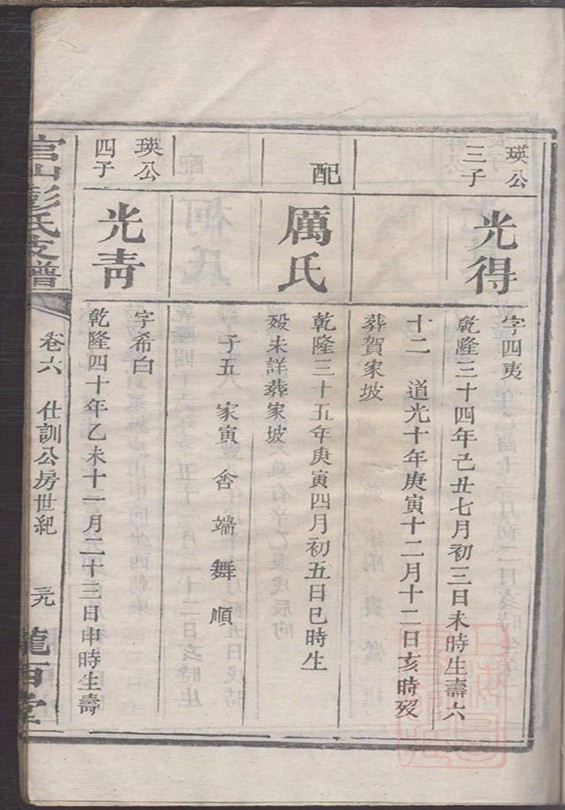 瑛公
三子
光得
字四夷
乾隆三十四年己丑七月初三日未時生壽六
十二 道光十年庚寅十二月十二日亥時歿
葬賀家坡
配
厲氏
乾隆三十五年庚寅四月初五日巳時生
歿未詳葬家坡
子五 家寅 舍 端 舞 順
瑛公
四子
光青
字希白
乾隆四十年乙未十一月二十三日申時生壽
官山彭氏支譜
卷六 仕訓公房世紀
三九